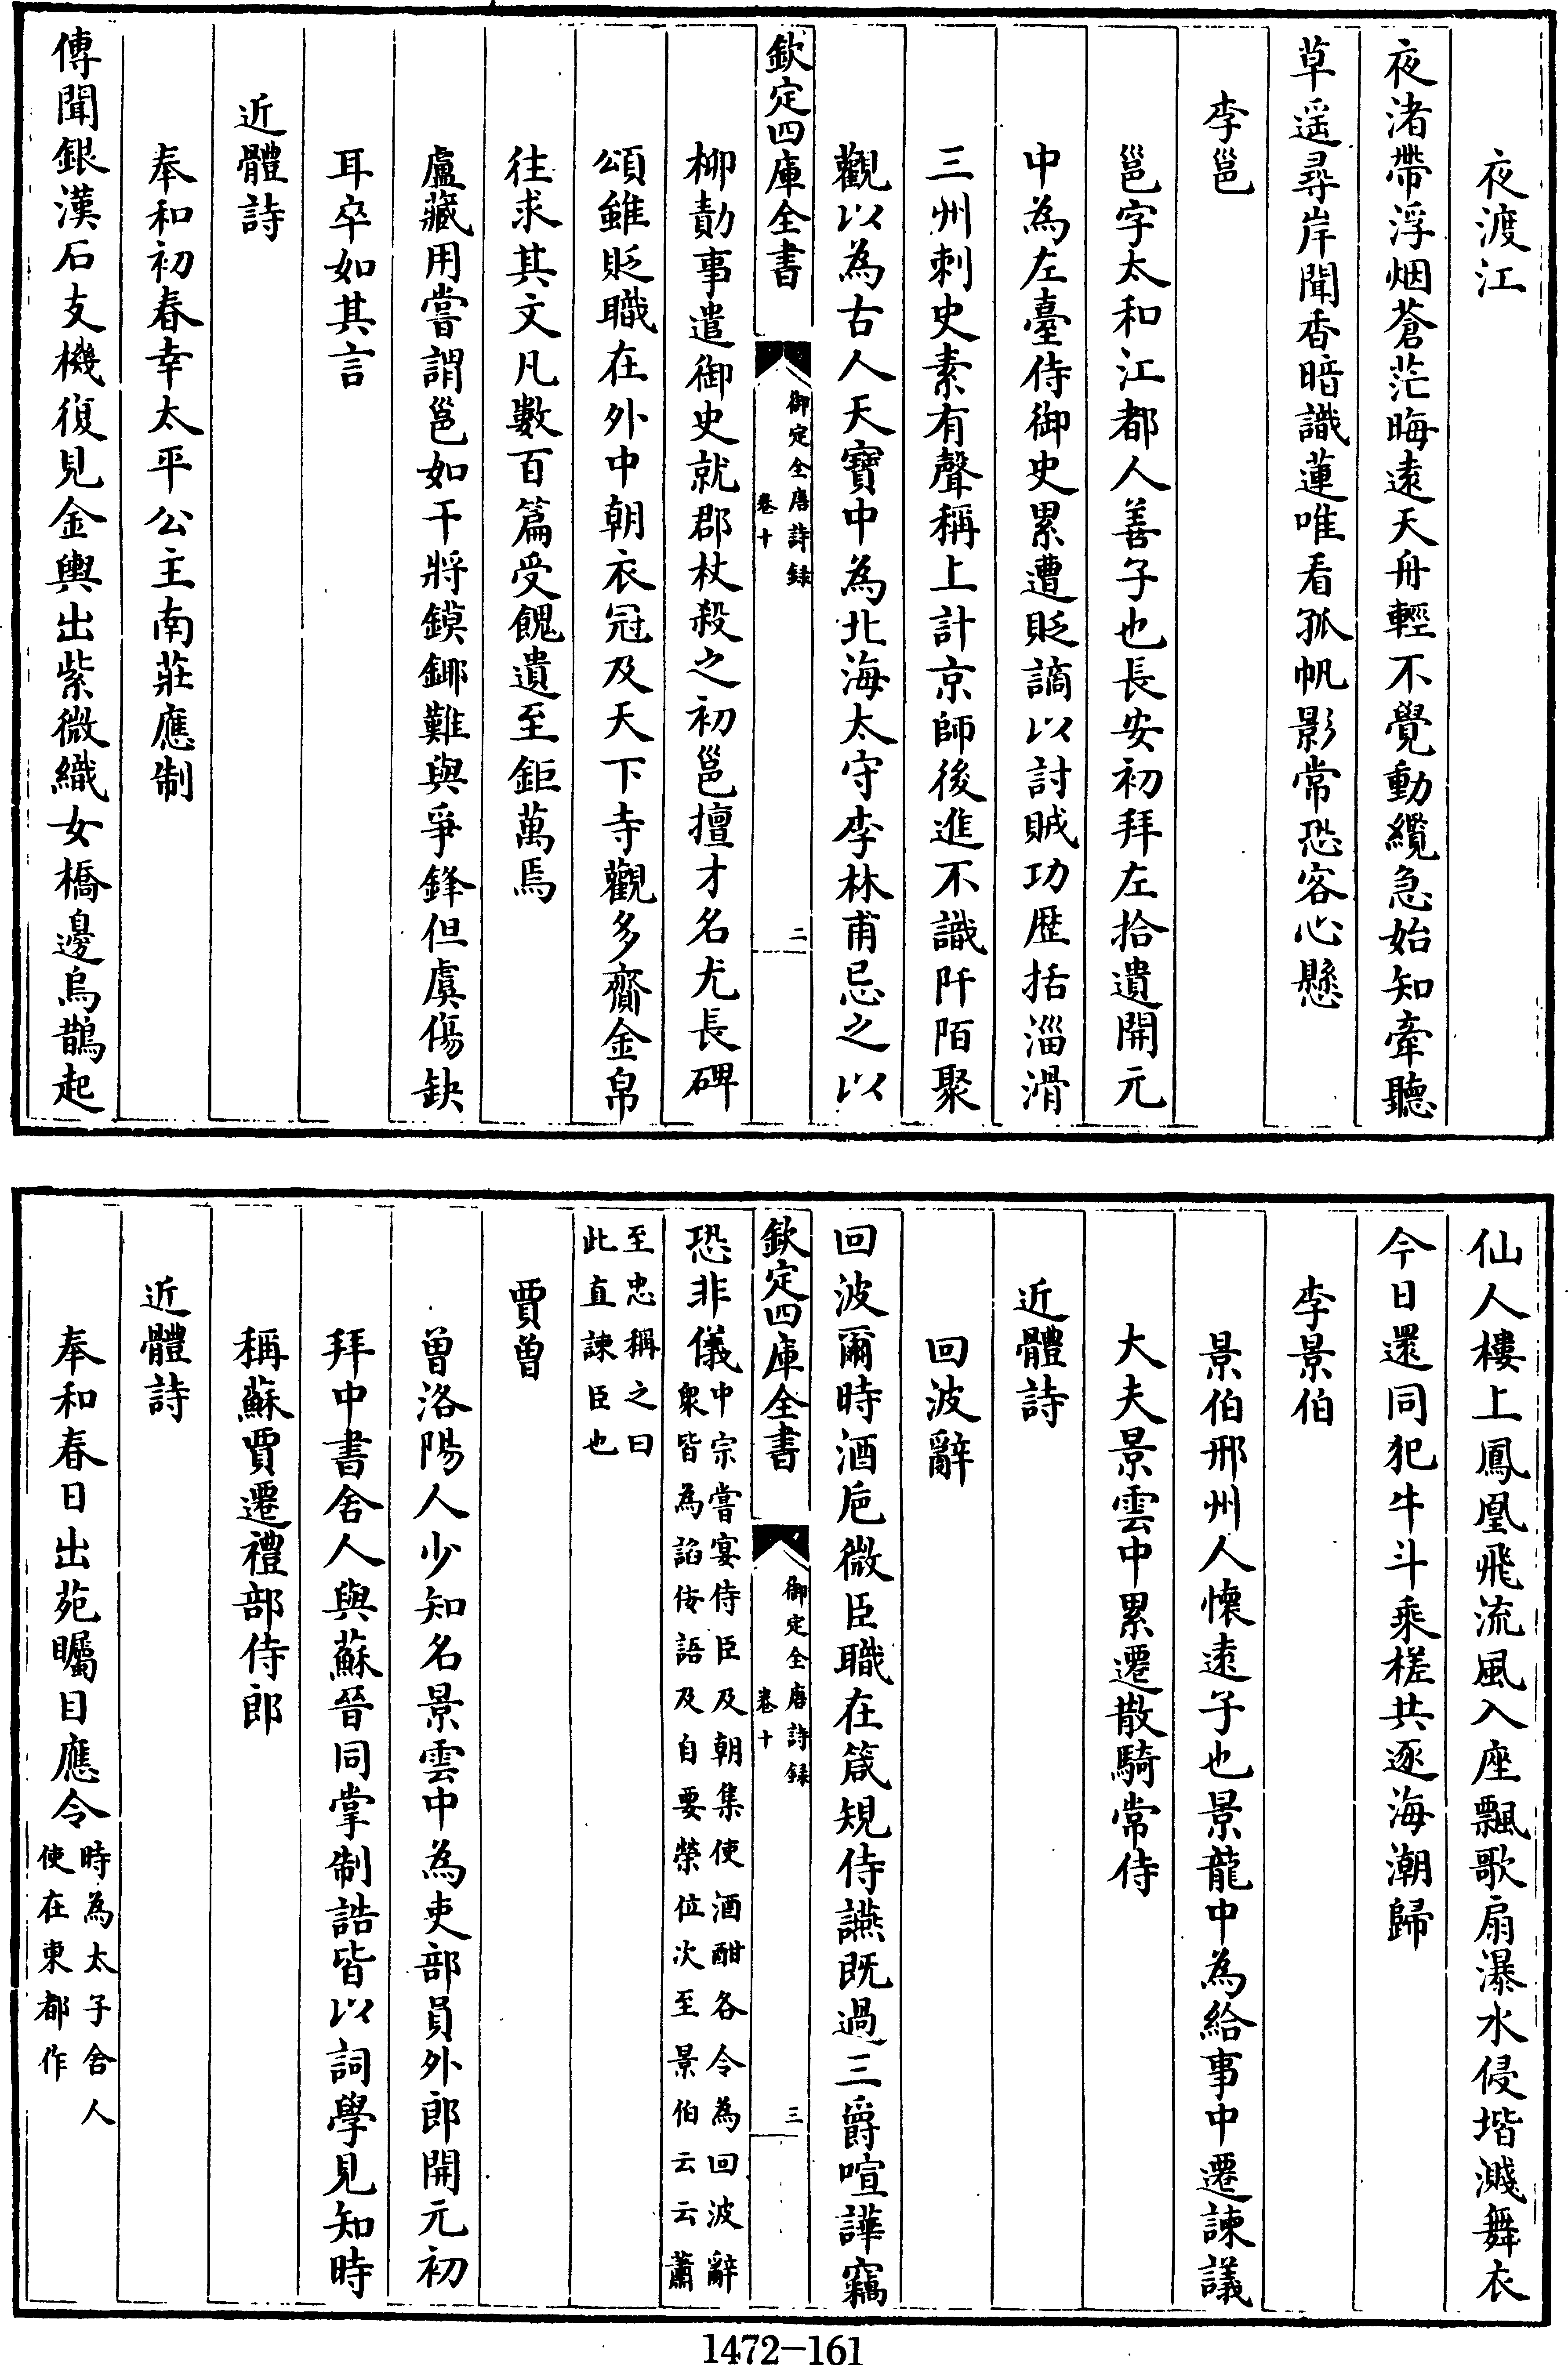 夜渡江
夜渚帶浮烟蒼茫晦遠天舟輕不覺動纜急始知牽聽
草遥尋岸聞香暗識蓮唯看孤帆影常恐客心懸
李邕
邕字太和江都人善子也長安初拜左拾遺開元
中為左臺侍御史累遭貶謫以討賊功歴括淄滑
三州刺史素有聲稱上計京師後進不識阡陌聚
觀以為古人天寶中為北海太守李林甫忌之以
欽定四庫全書
御定全唐詩録
卷十
二
柳勣事遣御史就郡杖殺之初邕擅才名尤長碑
頌雖貶職在外中朝衣冠及天下寺觀多齎金帛
往求其文凡數百篇受餽遺至鉅萬焉
盧藏用嘗謂邕如干將鏌鋣難與爭鋒但虞傷缺
耳卒如其言
近體詩
奉和初春幸太平公主南莊應制
傳聞銀漢石支機復見金輿出紫微織女橋邊烏鵲起
仙人樓上鳳凰飛流風入座飄歌扇瀑水侵堦濺舞衣
今日還同犯牛斗乘槎共逐海潮歸
李景伯
景伯邢州人懷遠子也景龍中為給事中遷諫議
大夫景雲中累遷散騎常侍
近體詩
回波辭
回波爾時酒巵微臣職在箴規侍讌既過三爵喧譁竊
欽定四庫全書
御定全唐詩録
卷十
三
恐非儀中宗嘗宴侍臣及朝集使酒酣各令為回波辭
衆皆為諂佞語及自要榮位次至景伯云云蕭
至忠稱之曰
此直諫臣也
賈曽
曽洛陽人少知名景雲中為吏部員外郎開元初
拜中書舍人與蘇晉同掌制誥皆以詞學見知時
稱蘇賈遷禮部侍郎
近體詩
奉和春日出苑矚目應令時為太子舍人
使在東都作
1472-161